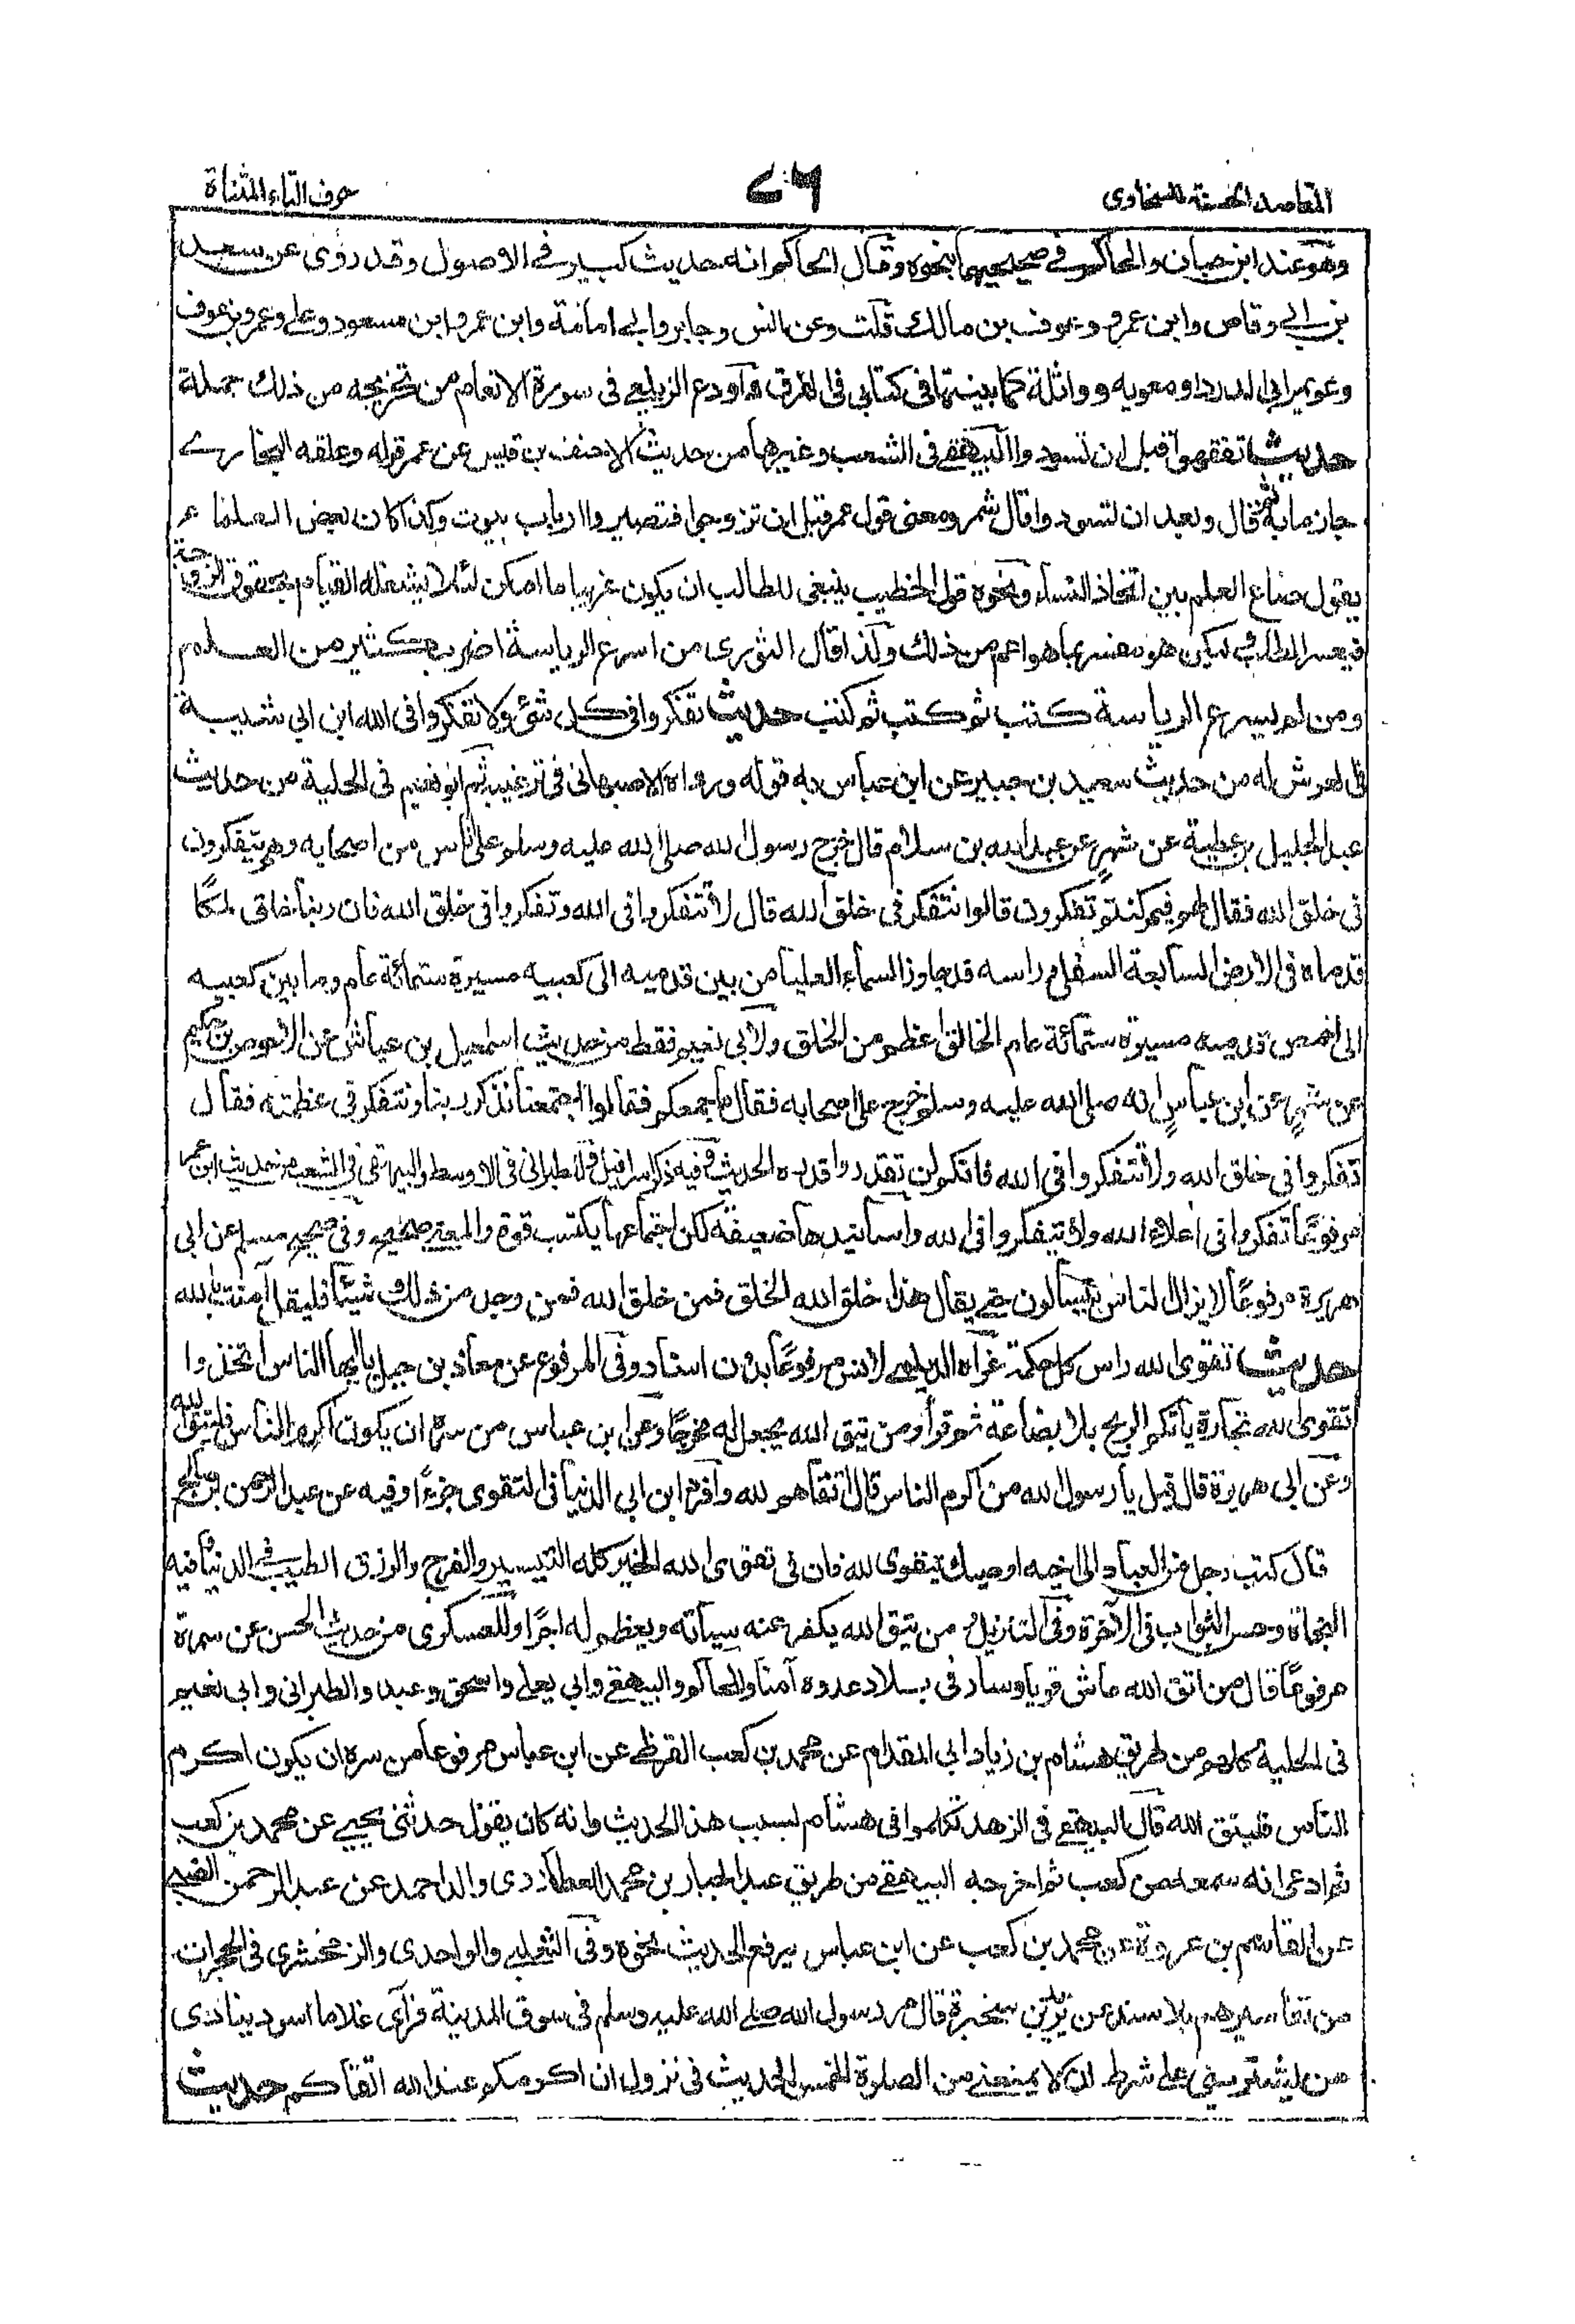 المقاصد الحسنة للسخاوى
٧٦
حرف التاء المثناة
وهو عند ابن حبان والحاكم في صحيحيهما بنحوه وقال الحاكم انه حديث كبير في الاصول وقد روى عن سعد
بن ابي وقاص وابن عمرو وعوف بن مالك قلت وعن انس وجابر وابي امامة وابن عمر وابن مسعود وعلي وعمرو بن عوف
وعويمر ابى الدرداء ومعوية وواثلة كما بينتها فى كتابى فى الفرق وأودع الزيلعي فى سورة الانعام من تخريجه من ذلك جملة
حديث تفقهوا قبل ان تسودوا البيهقي فى الشعب وغيرها من حديث الاحنف بن قيس عن عمر قوله وعلقه البخاري
جازما به ثم قال وبعد ان تسودوا قال شمر ومعنى قول عمر قبل ان تزوجوا فتصيروا ارباب بيوت وكذا كان بعض العلماء
يقول ضاع العلم بين افخاذ النساء ونحوه قول الخطيب ينبغى للطالب ان يكون عزبا ما امكن لئلا يشغله القيام بحقوق الزوجة
فيعسر المطلب لكن هو مفسر بما هو اعم من ذلك ولذا قال الثورى من اسرع الرياسة اضر بكثير من العلم
ومن لم يسرع الرياسة كتب ثم كتب ثم كتب حديث تفكروا فى كل شئ ولا تفكروا فى الله ابن ابى شيبة
فى العرش له من حديث سعيد بن جبير عن ابن عباس به قوله ورواه الاصبهانى فى ترغيبه ثم ابو نعيم فى الحلية من حديث
عبد الجليل بن عطية عن شهر عن عبد الله بن سلام قال خرج رسول الله صلى الله عليه وسلم على ناس من اصحابه وهم يتفكرون
فى خلق الله فقال لهم فيم كنتم تفكرون قالوا نتفكر فى خلق الله قال لا تتفكروا فى الله وتفكروا فى خلق الله فان ربنا خلق ملكا
قدماه فى الارض السابعة السفلى وراسه قد جاوز السماء العليا من بين قدميه الى كعبيه مسيرة ستمائة عام وما بين كعبيه
الى اخمص قدميه مسيرة ستمائة عام الخالق اعظم من الخلق ولأبى نعيم فقط من حديث اسمعيل بن عياش عن الاحوص بن حكيم
عن شهر عن ابن عباس انه صلى الله عليه وسلم خرج على اصحابه فقال ما جمعكم فقالوا اجتمعنا نذكر ربنا ونتفكر فى عظمته فقال
تفكروا فى خلق الله ولا تتفكروا فى الله فانكم لن تقدروا قدره الحديث وفيه ذكر اسرافيل وللطبرانى فى الاوسط والبيهقى فى الشعب من حديث ابن عمر
مرفوعا تفكروا فى آلاء الله ولا تتفكروا فى الله واسانيدها ضعيفة لكن اجتماعها يكتسب قوة والمعنى صحيح وفى صحيح مسلم عن ابى
هريرة مرفوعا لا يزال الناس يتساءلون حتى يقال هذا خلق الله الخلق فمن خلق الله فمن وجد من ذلك شيئا فليقل آمنت بالله
حديث تقوى الله راس كل حكمة عزاه الديلمي لانس مرفوعا بدون اسناد وفى المرفوع عن معاذ بن جبل يا ايها الناس اتخذوا
تقوى الله تجارة يأتكم الربح بلا بضاعة ثم قرأ ومن يتق الله يجعل له مخرجا وعن ابن عباس من سره ان يكون اكرم الناس فليتق الله
وعن ابى هريرة قال قيل يا رسول الله من اكرم الناس قال اتقاهم لله وافرد ابن ابى الدنيا فى التقوى جزءا وفيه عن عبد الرحمن بن صالح
قال كتب رجل من العباد الى اخيه اوصيك بتقوى الله فان فى تقوى الله الخير كله التيسير والفرج والرزق الطيب في الدنيا وفيه
النجاة وحسن الثواب فى الآخرة وفى التنزيل ومن يتق الله يكفر عنه سيآته ويعظم له اجرا وللعسكرى من حديث الحسن عن سمرة
مرفوعا قال من اتقى الله عاش قويا وسار فى بلاد عدوه آمنا وللحاكم والبيهقي وابي يعلى واسحق وعبد والطبرانى وابى نعيم
فى الحلية كلهم من طريق هشام بن زياد ابى المقدام عن محمد بن كعب القرظي عن ابن عباس مرفوعا من سره ان يكون اكرم
الناس فليتق الله قال البيهقي فى الزهد تكلموا فى هشام بسبب هذا الحديث وانه كان يقول حدثنى يحيى عن محمد بن كعب
ثم ادعى انه سمعه من كعب ثم اخرجه البيهقي من طريق عبد الجبار بن محمد العطاردى والد احمد عن عبد الرحمن الضبي
عن القاسم بن عروة عن محمد بن كعب عن ابن عباس يرفع الحديث نحوه وفى الثعلبي والواحدى والزمخشرى فى الحجرات
من تفاسيرهم بلا سند عن يزيد بن شجرة قال مر رسول الله صلى الله عليه وسلم فى سوق المدينة فرآى غلاما اسود ينادى
من يشترينى على شرط ان لا يمنعنى من الصلوة الخمس الحديث فى نزول ان اكرمكم عند الله اتقاكم حديث